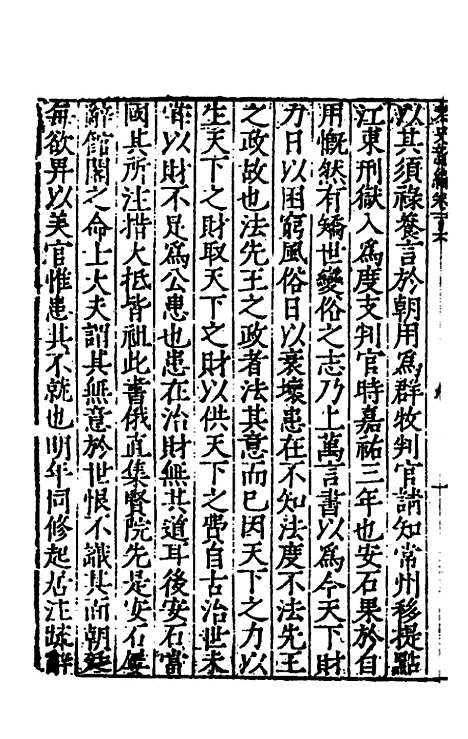 宋史新編卷一百六
以其須祿養言於朝用爲群牧判官請知常州移提點
江東刑獄入爲度支判官時嘉祐三年也安石果於自
用慨然有矯世變俗之志乃上萬言書以爲今天下財
力日以困窮風俗日以衰壞患在不知法度不法先王
之政故也法先王之政者法其意而已因天下之力以
生天下之財取天下之財以供天下之費自古治世未
嘗以財不足爲公患也患在治財無其道耳後安石當
國其所注措大抵皆祖此書俄直集賢院先是安石屢
辭館閣之命士大夫謂其無意於世恨不識其面朝廷
每欲畀以美官惟患其不就也明年同修起居注疏辭